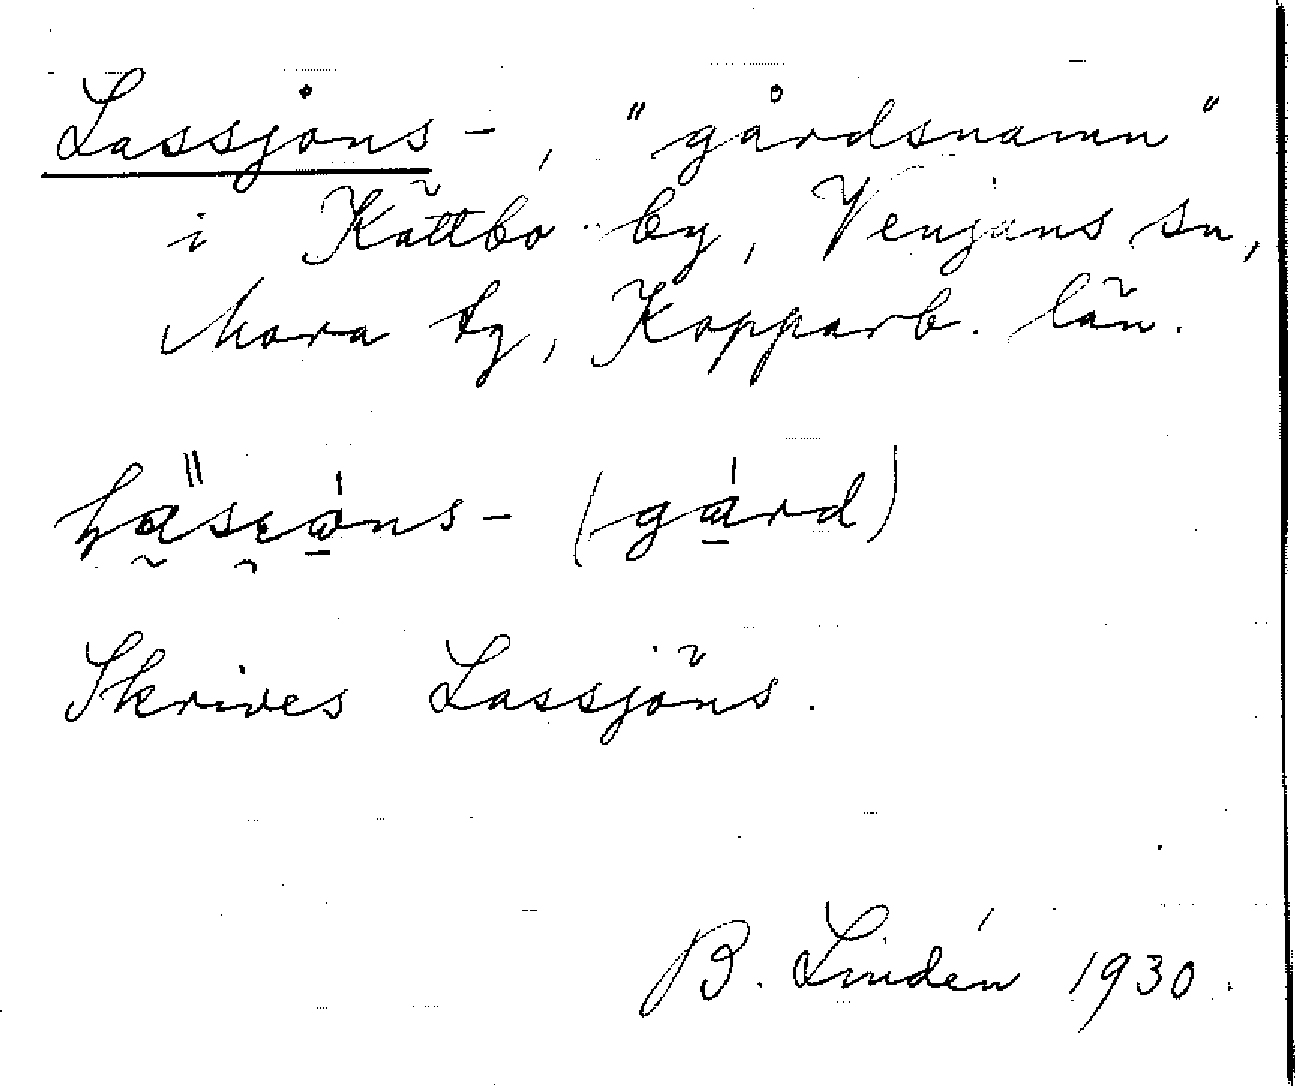 Lassjåns-, "gårdsnamn"
i Kättbo by, Venjans sn,
Mora tg, Kopparb. län.
(-gård)
Skrives Lassjöns.
B. Lindén 1930.